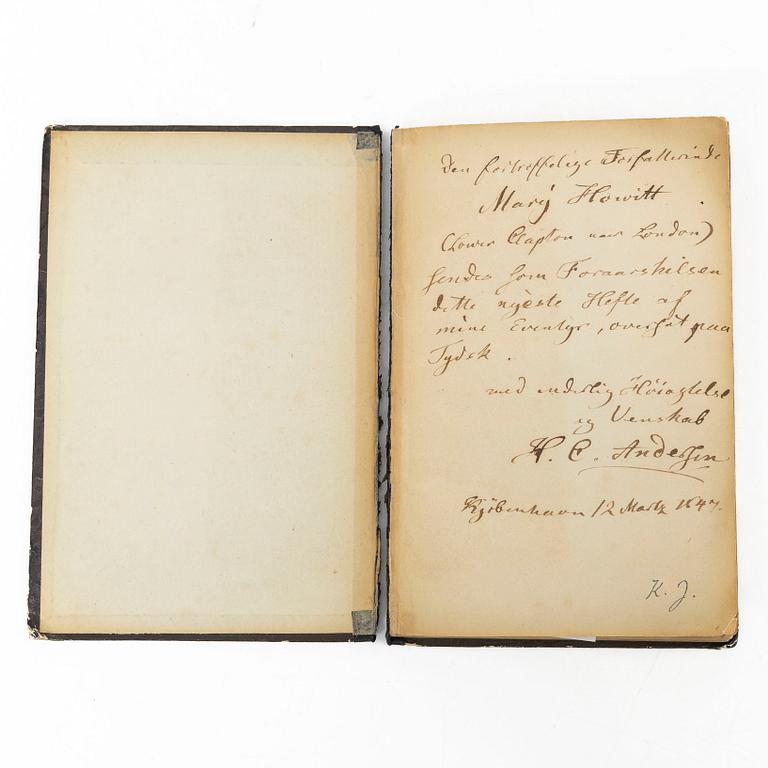 Den fortreffelige Forfatterinde
Mary Howitt
(Lower Clapton near London)
sendes som Foraarshilsen
dette nyeste Hefte af
mine Eventyr, oversat paa
Tydsk.
med inderlig Höiagtelse
og Venskab
H. C. Andersen
Kjöbenhavn 12 Marts 1847.
K. J.